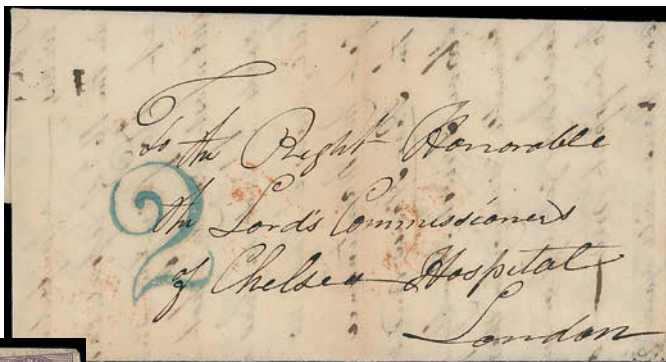 To the Right Honorable
the Lord's Commissioners
of Chelsea Hospital
London
2